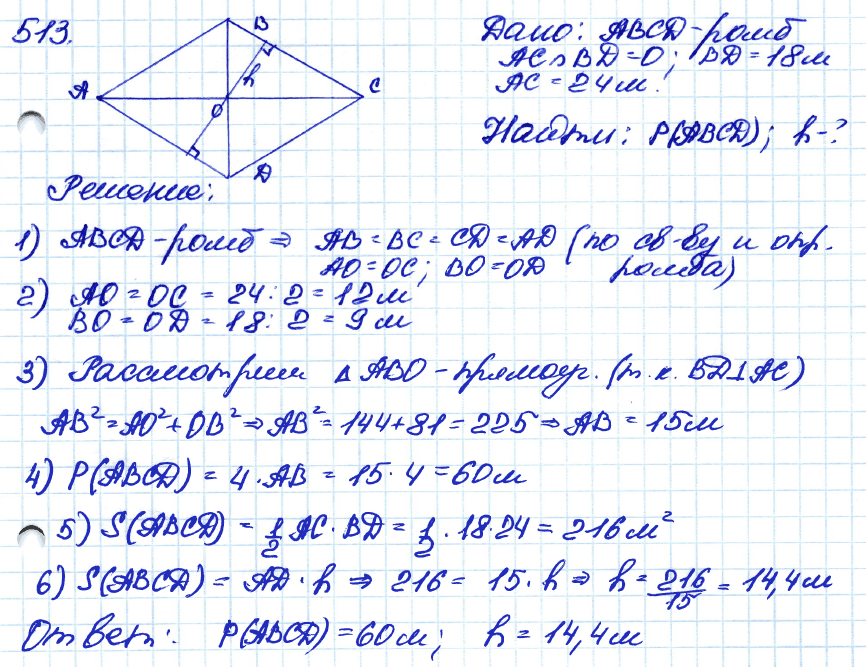 513.
B
h
A
C
O
D
Дано: ABCD - ромб
AC ∩ BD = O; BD = 18м
AC = 24м.
Найти: P(ABCD); h - ?
Решение:
1) ABCD - ромб ⇒ AB = BC = CD = AD (по св-ву и опр.
AO = OC; BO = OD ромба)
2) AO = OC = 24 : 2 = 12м
BO = OD = 18 : 2 = 9м
3) Рассмотрим △ABO - прямоуг. (т.к. BD⊥AC)
AB² = AO² + OB² ⇒ AB² = 144 + 81 = 225 ⇒ AB = 15м
4) P(ABCD) = 4 · AB = 15 · 4 = 60м
5) S(ABCD) = 1/2 AC · BD = 1/2 · 18 · 24 = 216м²
6) S(ABCD) = AD · h ⇒ 216 = 15 · h ⇒ h = 216/15 = 14,4м
Ответ: P(ABCD) = 60м; h = 14,4м